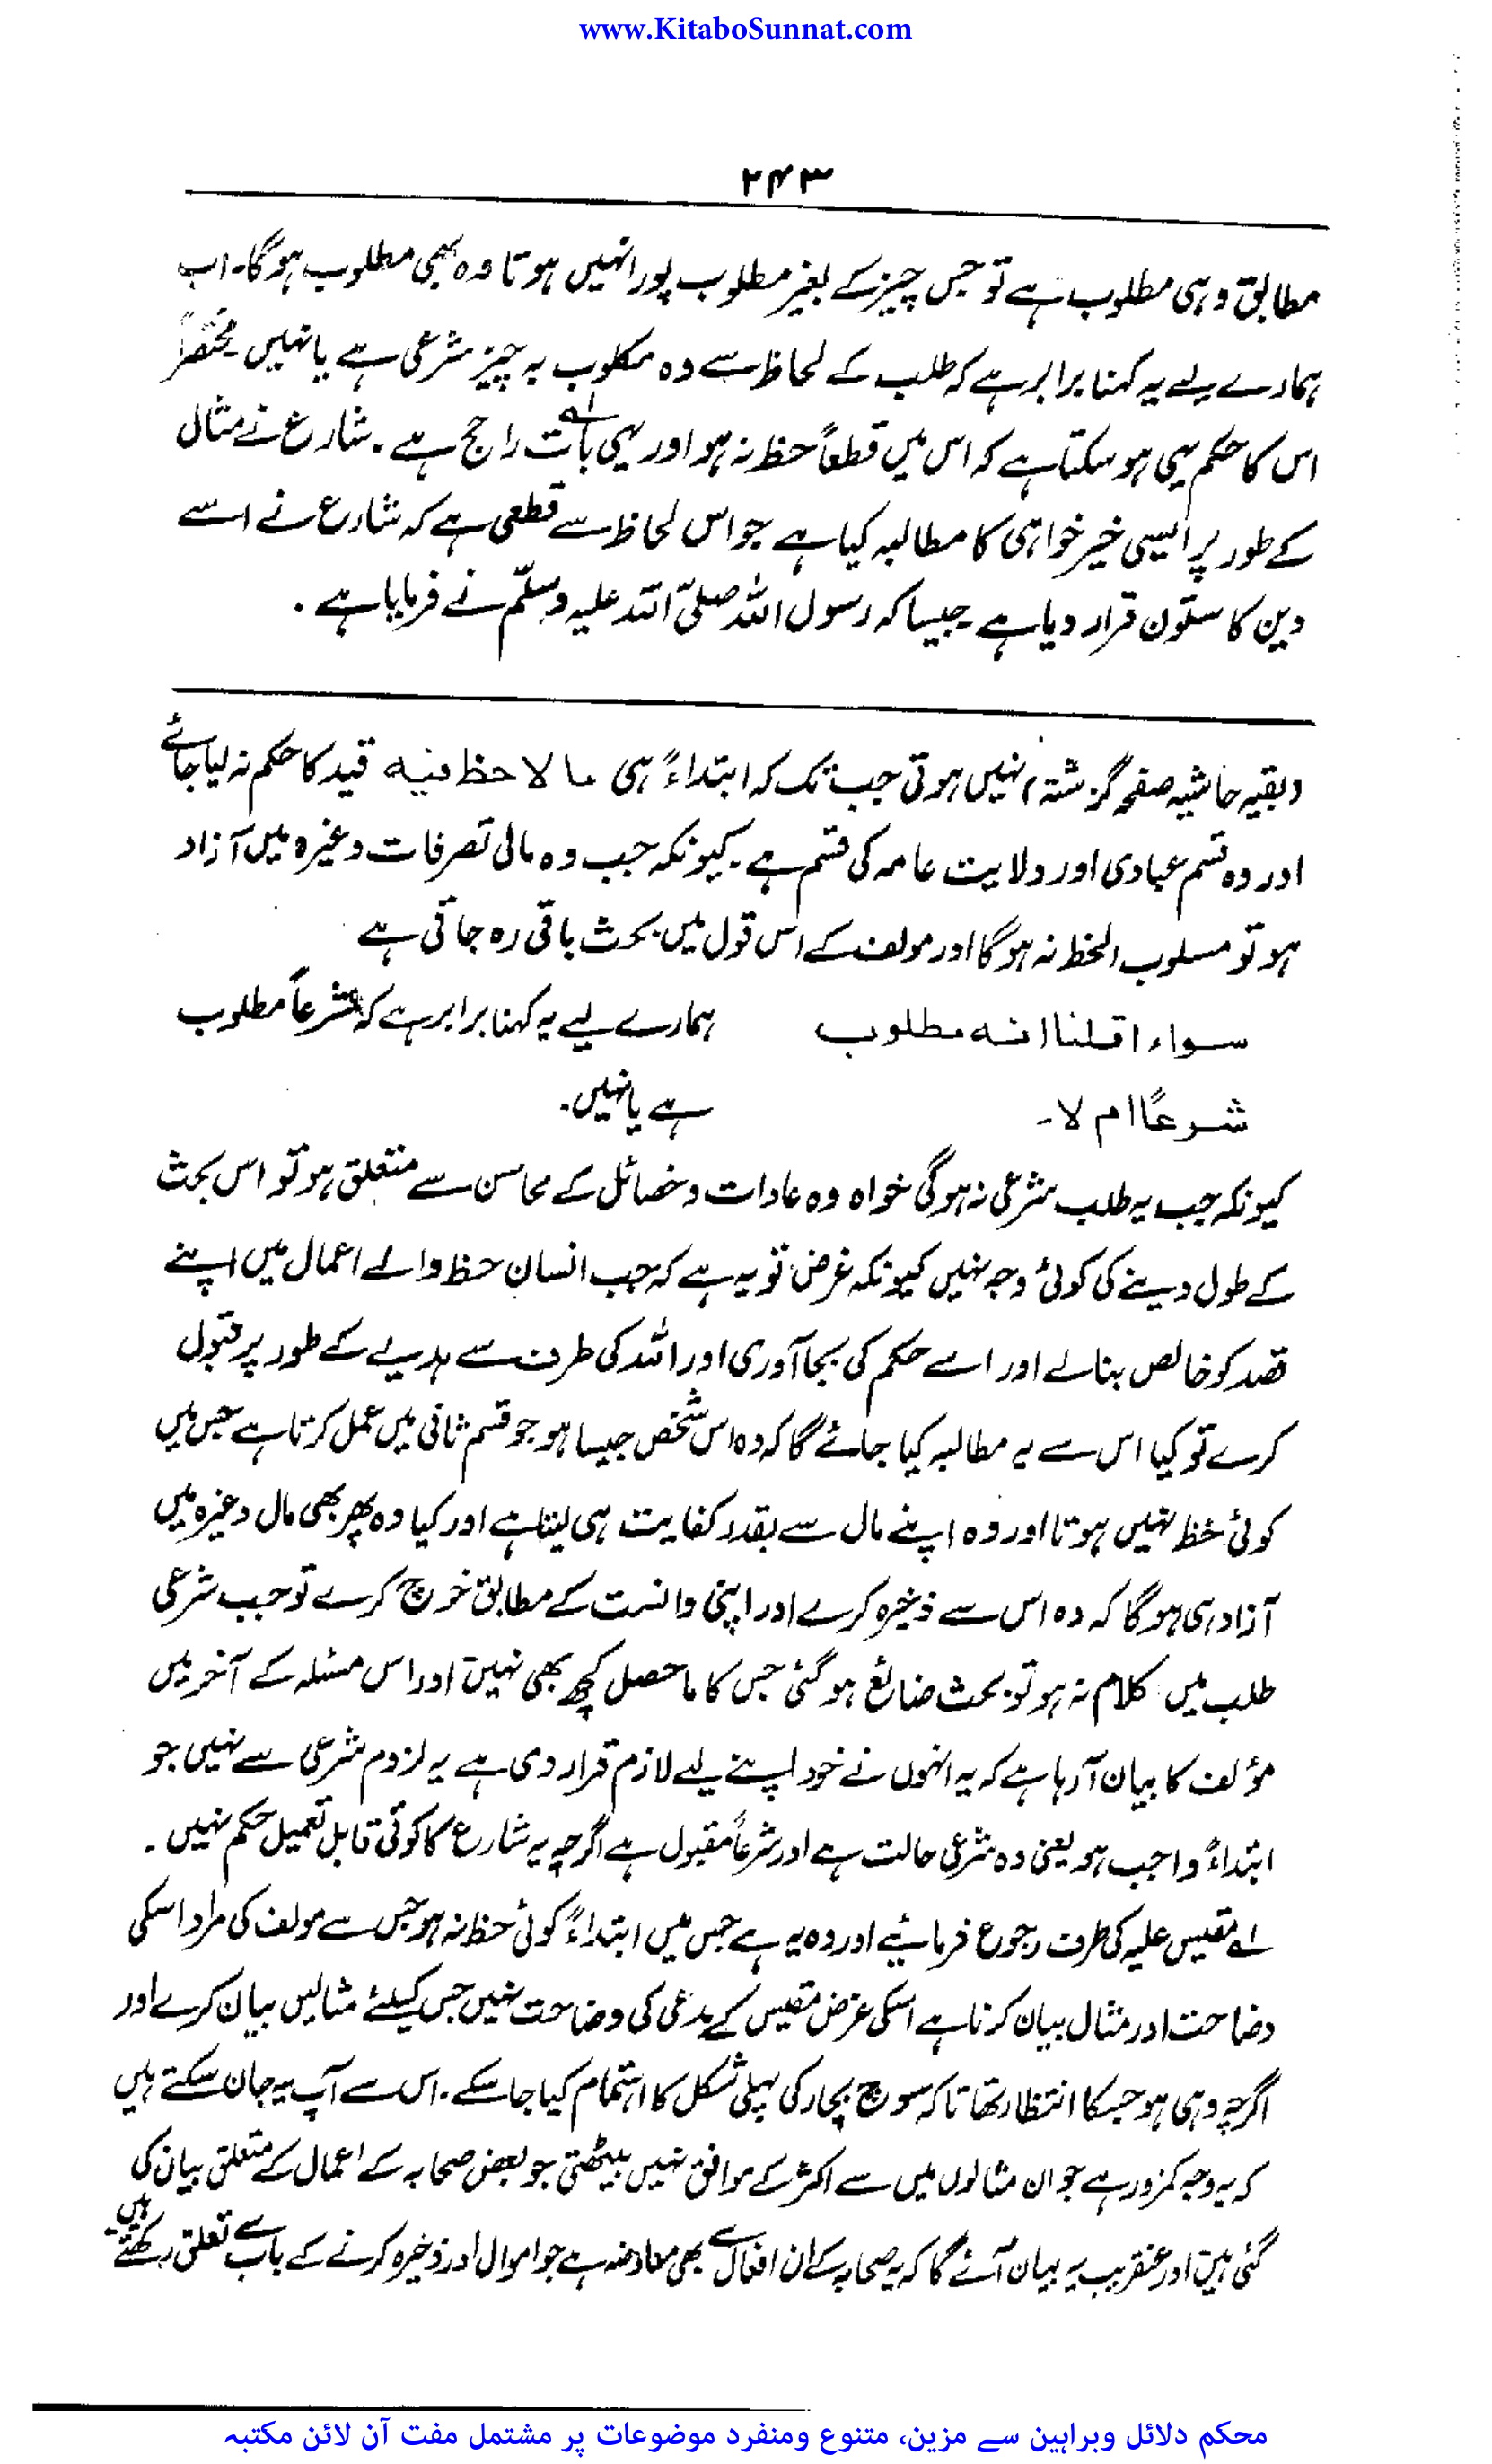 www.KitaboSunnat.com
۲۴۳
مطابق وہی مطلوب ہے تو جس چیز کے بغیر مطلوب پورا نہیں ہوتا وہ بھی مطلوب ہوگا۔ اب
ہمارے لیے یہ کہنا برابر ہے کہ طلب کے لحاظ سے وہ مطلوب یہ چیز شرعی ہے یا نہیں۔ مختصراً
اس کا حکم یہی ہو سکتا ہے کہ اس میں قطعاً حظ نہ ہو اور یہی بات راجح ہے۔ شارع نے مثال
کے طور پر ایسی خیر خواہی کا مطالبہ کیا ہے جو اس لحاظ سے قطعی ہے کہ شارع نے اسے
دین کا ستون قرار دیا ہے جیسا کہ رسول اللہ صلی اللہ علیہ وسلم نے فرمایا ہے۔
(بقیہ حاشیہ صفحہ گزشتہ) نہیں ہوتی جب تک کہ ابتداءً ہی ما لا حظ فیہ قید کا حکم نہ لیا جائے
اور وہ قسم عبادی اور ولایت عامہ کی قسم ہے۔ کیونکہ جب وہ مالی تصرفات وغیرہ میں آزاد
ہو تو مسلوب الحظ نہ ہوگا اور مولف کے اس قول میں بحث باقی رہ جاتی ہے
سواء اقلنا انہ مطلوب ہمارے لیے یہ کہنا برابر ہے کہ شرعاً مطلوب
شرعًا ام لا۔ ہے یا نہیں۔
کیونکہ جب یہ طلب شرعی نہ ہوگی خواہ وہ عادات وخصائل کے محاسن سے متعلق ہو تو اس بحث
کے طول دینے کی کوئی وجہ نہیں کیونکہ غرض تو یہ ہے کہ جب انسان حظ والے اعمال میں اپنے
قصد کو خالص بنالے اور اسے حکم کی بجا آوری اور اللہ کی طرف سے ہدیے کے طور پر قبول
کرے تو کیا اس سے یہ مطالبہ کیا جائے گا کہ وہ اس شخص جیسا ہو جو قسم ثانی میں عمل کرتا ہے جس میں
کوئی حظ نہیں ہوتا اور وہ اپنے مال سے بقدر کفایت ہی لیتا ہے اور کیا وہ پھر بھی مال وغیرہ میں
آزاد ہی ہوگا کہ وہ اس سے ذخیرہ کرے اور اپنی دانست کے مطابق خرچ کرے تو جب شرعی
طلب میں کلام نہ ہو تو بحث ضائع ہو گئی جس کا ماحصل کچھ بھی نہیں اور اس مسئلہ کے آخر میں
مؤلف کا بیان آ رہا ہے کہ یہ انہوں نے خود اپنے لیے لازم قرار دی ہے یہ لزوم شرعی سے نہیں جو
ابتداءً واجب ہو یعنی وہ شرعی حالت ہے اور شرعاً مقبول ہے اگرچہ یہ شارع کا کوئی قابل تعمیل حکم نہیں۔
لے مقیس علیہ کی طرف رجوع فرمائیے اور وہ یہ ہے جس میں ابتداءً کوئی حظ نہ ہو جس سے مولف کی مراد اسکی
وضاحت اور مثال بیان کرنا ہے اسکی غرض مقیس کے مدعی کی وضاحت نہیں جس کیلئے مثالیں بیان کرے اور
اگرچہ وہی ہو جسکا انتظار تھا تاکہ سوچ بچار کی پہلی شکل کا اہتمام کیا جا سکے۔ اس سے آپ یہ جان سکتے ہیں
کہ یہ وجہ کمزور ہے جو ان مثالوں میں سے اکثر کے موافق نہیں بیٹھتی جو بعض صحابہ کے اعمال کے متعلق بیان کی
گئی ہیں اور عنقریب یہ بیان آئے گا کہ یہ صحابہ کے ان افعال سے بھی معاوضہ ہے جو اموال اور ذخیرہ کرنے کے باب سے تعلق رکھتے ہیں۔
محکم دلائل وبراہین سے مزین، متنوع ومنفرد موضوعات پر مشتمل مفت آن لائن مکتبہ